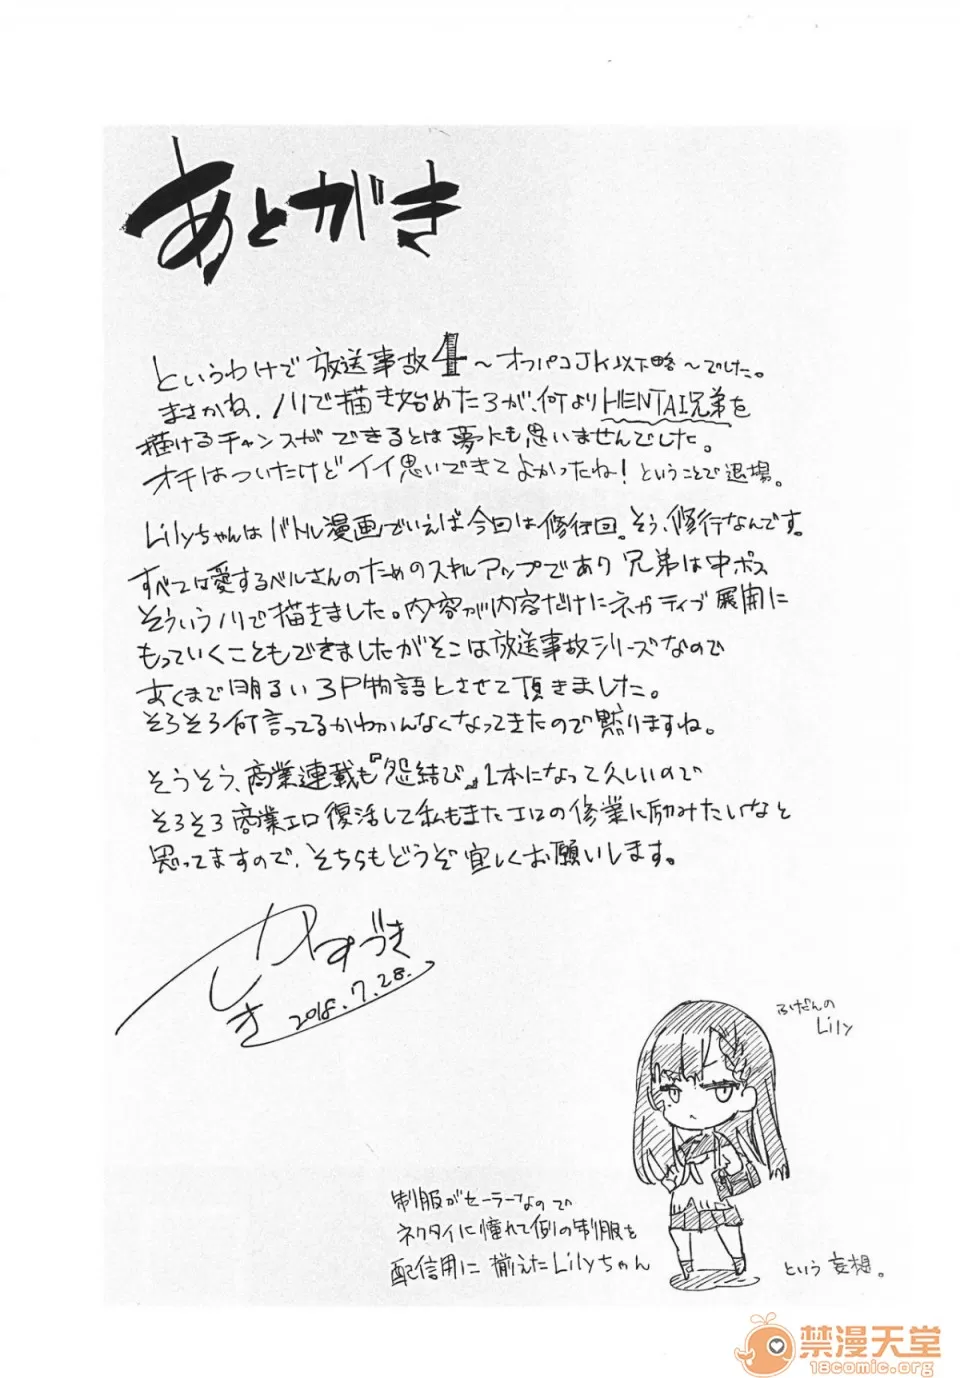 あとがき
というわけで放送事故4～オフパコJK以下略～でした。
まさかね、ノリで描き始めた3が、何よりHENTAI兄弟を
描けるチャンスができるとは夢にも思いませんでした。
オチはついたけどイイ思いできてよかったね！ということで退場。
Lilyちゃんはバトル漫画でいえば今回は修行回。そう、修行なんです。
すべては愛するベルさんのためのスキルアップであり兄弟は中ボス
そういうノリで描きました。内容が内容だけにネガティブ展開に
もっていくこともできましたがそこは放送事故シリーズなので
あくまで明るい3P物語とさせて頂きました。
そろそろ何言ってるかわかんなくなってきたので黙りますね。
そうそう、商業連載も『怨結び』1本になって久しいので
そろそろ商業エロ復活して私もまたエロの修業に励みたいなと
思ってますので、そちらもどうぞ宜しくお願いします。
かずづき
しき
2018.7.28.
ふだんの
Lily
制服がセーラーなので
ネクタイに憧れて例の制服を
配信用に揃えたLilyちゃん
という妄想。
禁漫天堂
18comic.org